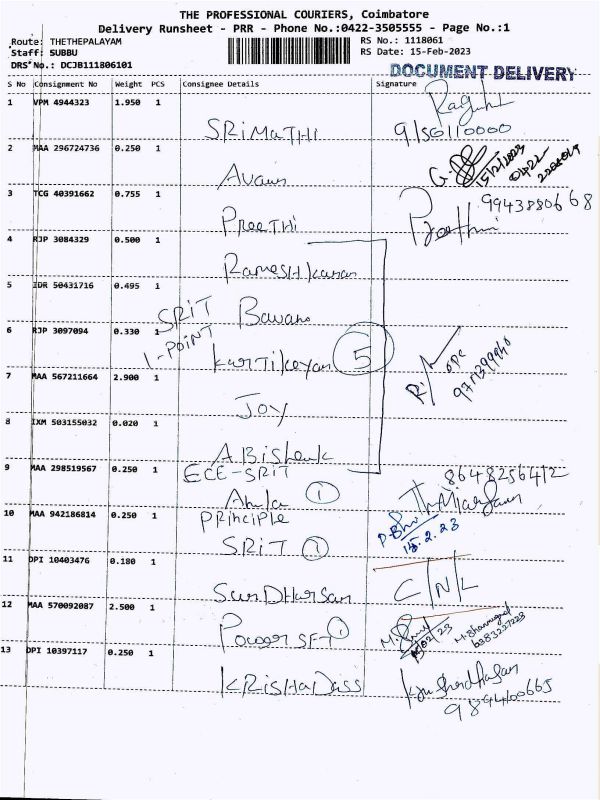 THE PROFESSIONAL COURIERS, Coimbatore
Delivery Runsheet - PRR - Phone No.:0422-3505555 - Page No.:1
Route: THETHEPALAYAM
Staff: SUBBU
DRS No.: DCJB111806101
RS No.: 1118061
RS Date: 15-Feb-2023
DOCUMENT DELIVERY
S No Consignment No Weight PCS Consignee Details Signature
1 VPM 4944323 1.950 1
SRiMATHI
2 MAA 296724736 0.250 1
15/2/2023
3 TCG 40391662 0.755 1
PREETHI
Preethi
9943880668
4 RJP 3084329 0.500 1
5 IDR 50431716 0.495 1
SRIT
1-POINT
6 RJP 3097094 0.330 1
Kartikeyan
5
7 MAA 567211664 2.900 1
JOY
8 IXM 503155032 0.020 1
9 MAA 298519567 0.250 1
ECE-SRIT
1
8648256412
10 MAA 942186814 0.250 1
PRinciple
SRiT 1
15.2.23
11 DPI 10403476 0.180 1
SunDHarSan
C/N/L
12 MAA 570092087 2.500 1
Power SFT 1
13 DPI 10397117 0.250 1
KRiSHaDass
9894400665